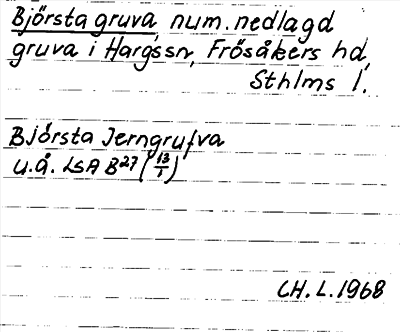 Björsta gruva, num. nedlagd
gruva i Hargs sn, Frösåkers hd,
Sthlms l.
Björsta Jerngrufva
u.å. LSA B27 (13/1)
CH. L. 1968